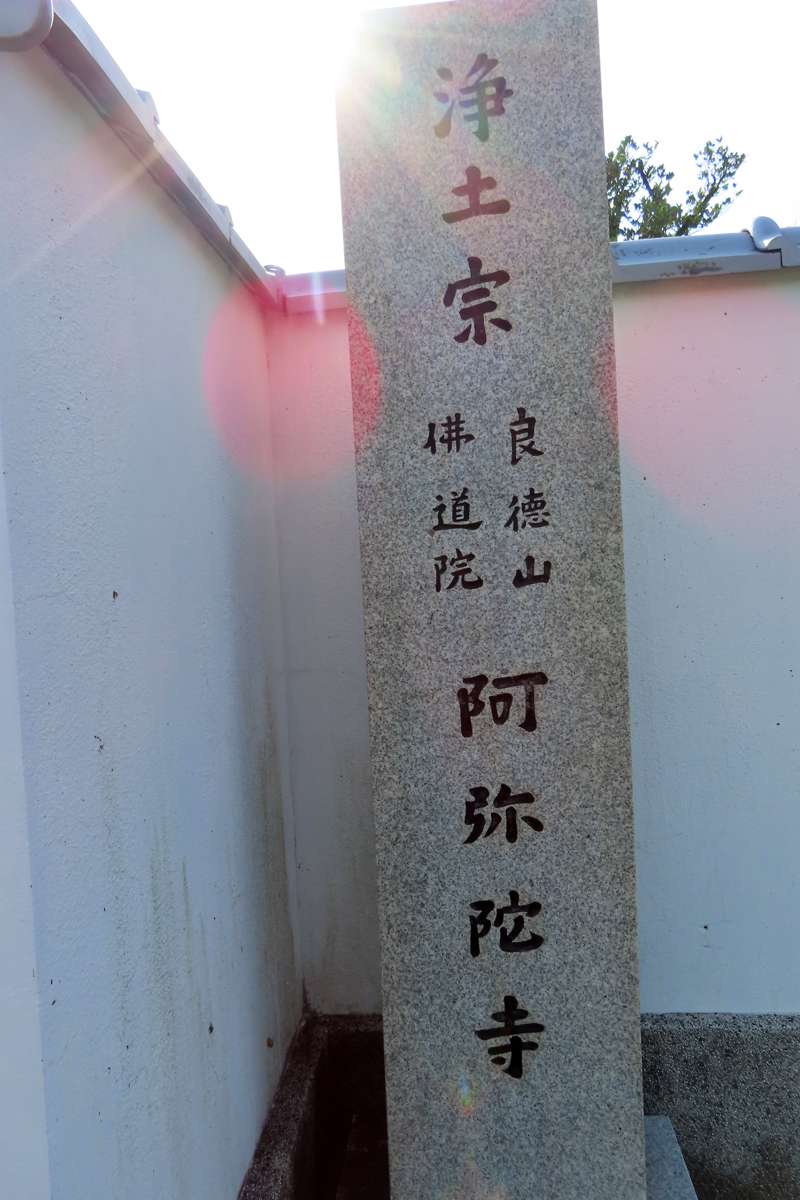 浄土宗
良德山
佛道院
阿弥陀寺